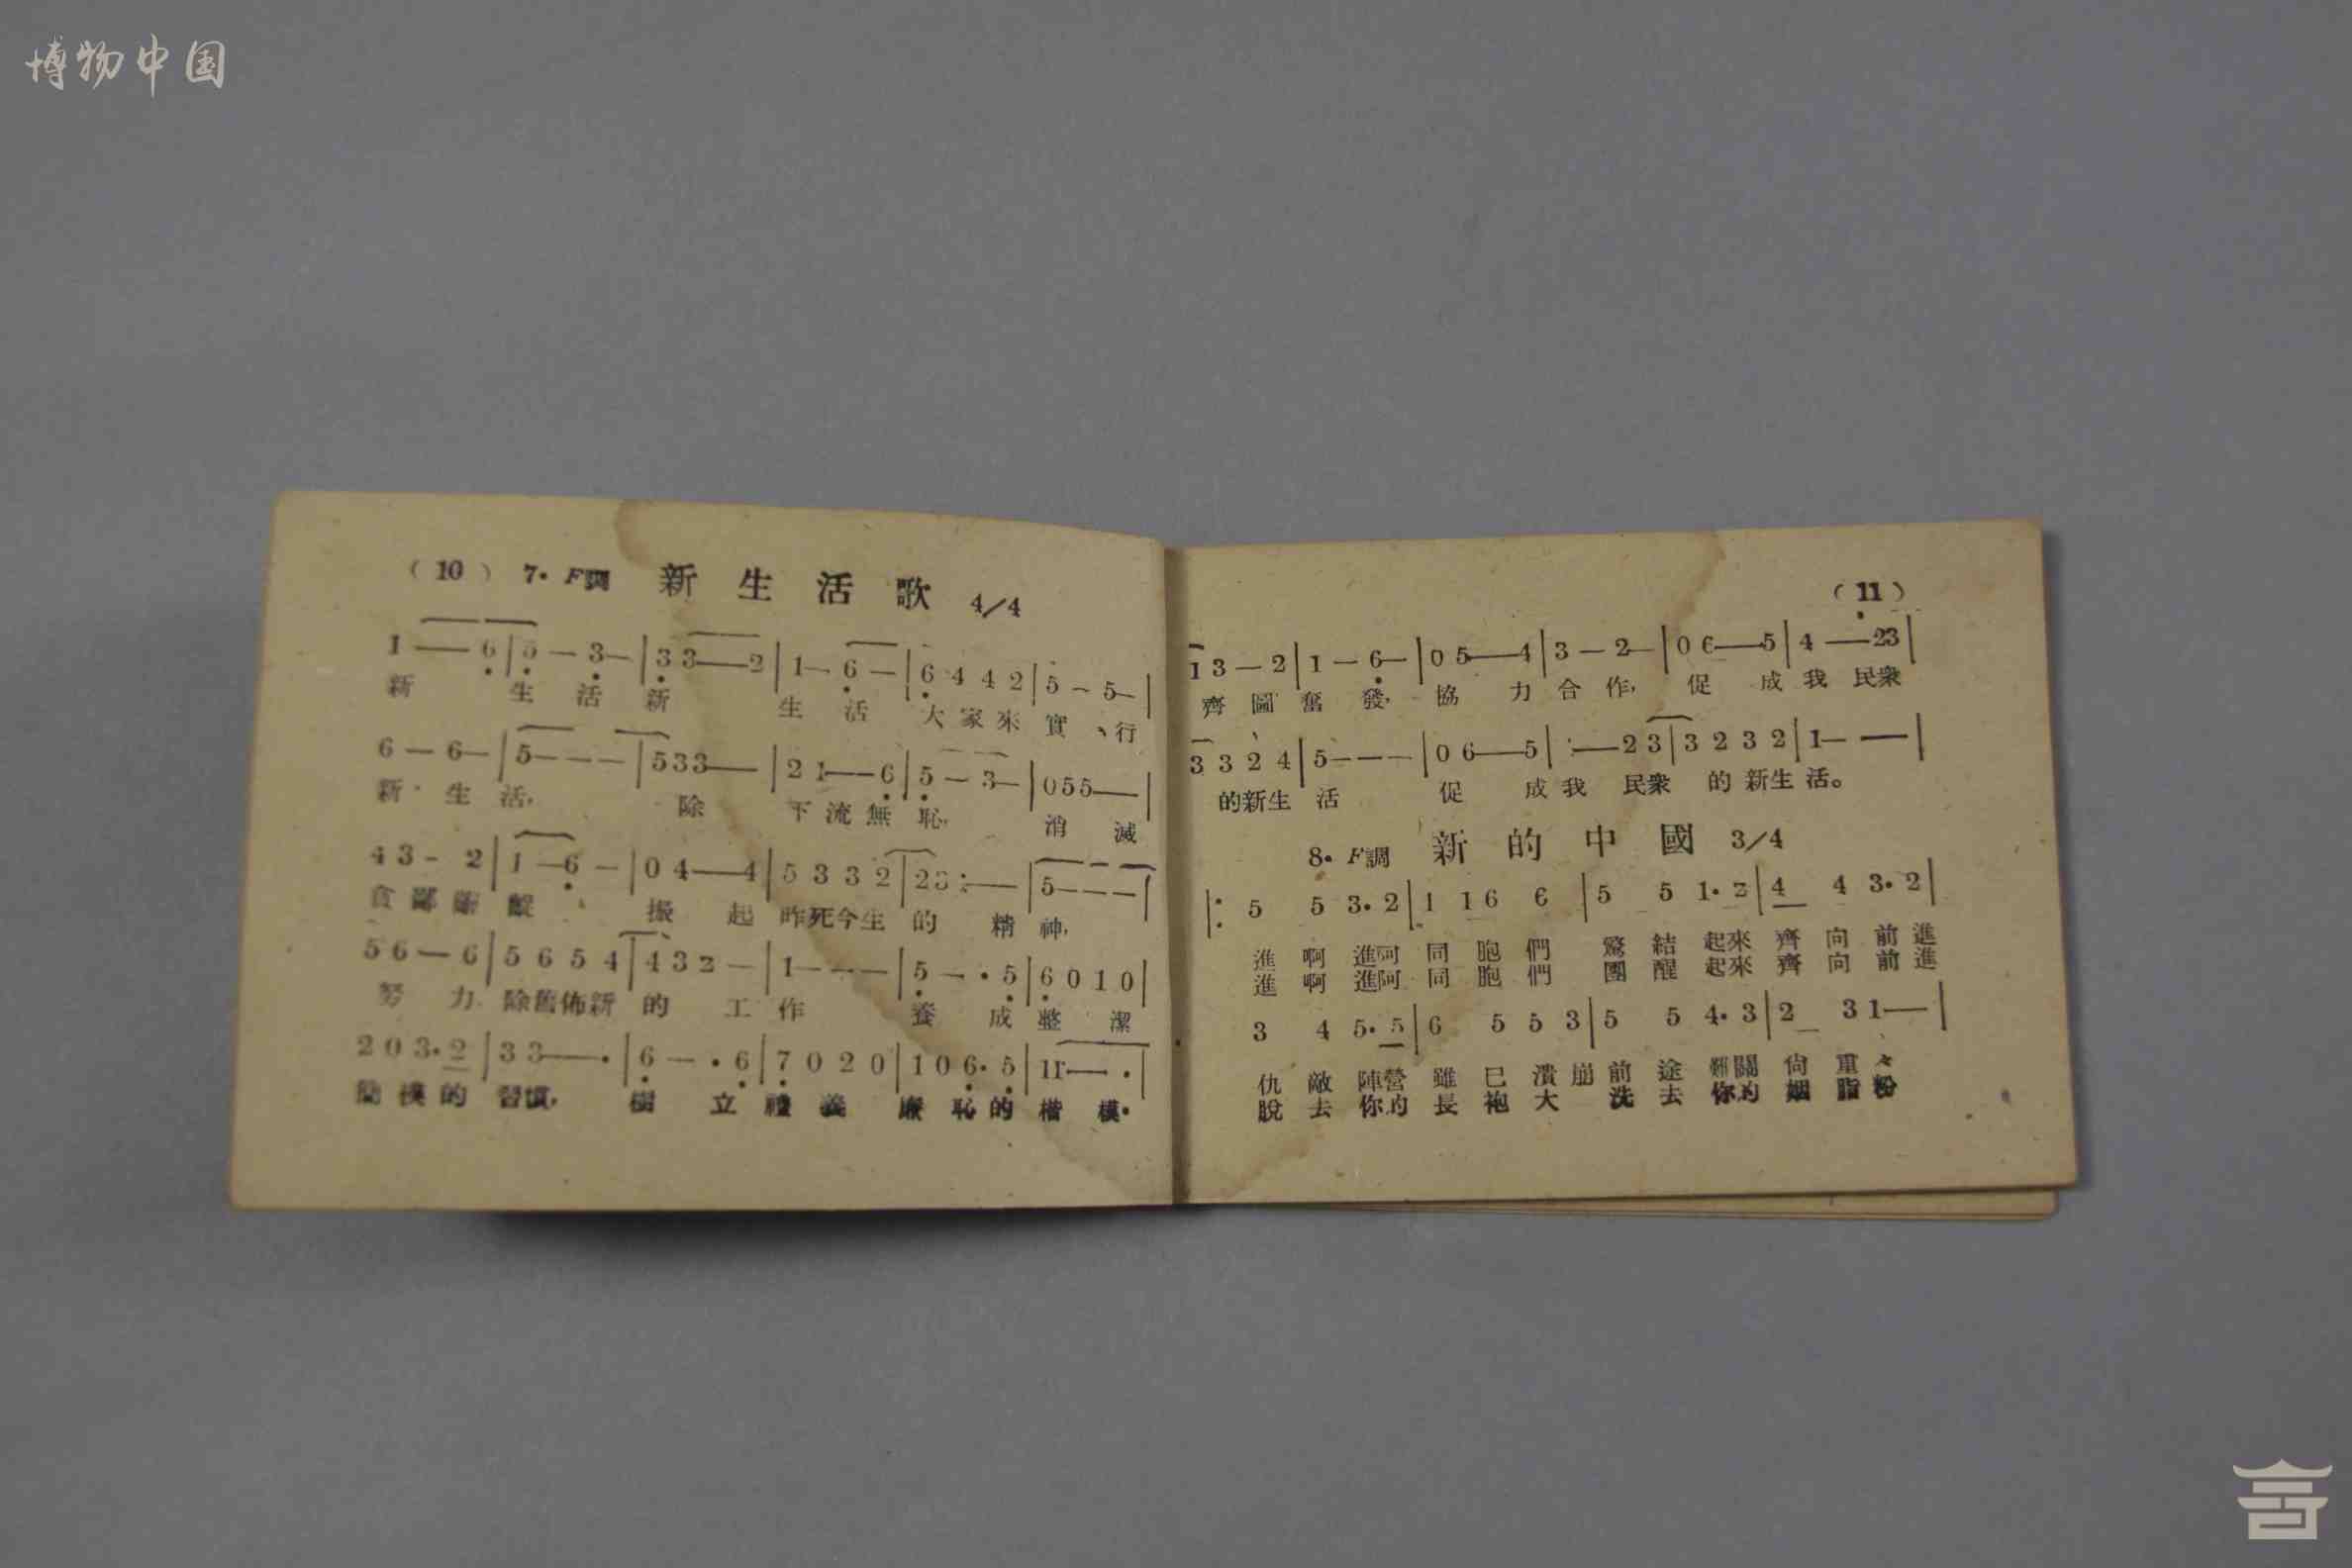 博物中国
(10) 7. F調 新生活歌 4/4
1 — 6 | 5 — 3 — | 3 3 — 2 | 1 — 6 — | 6 4 4 2 | 5 — 5 — |
新 生 活 新 生 活 大 家 來 實 、 行
6 — 6 — | 5 — — — | 5 3 3 — | 2 1 — 6 | 5 — 3 — | 0 5 5 — |
新 生 活, 除 下 流 無 恥, 消 滅
4 3 - 2 | 1 — 6 — | 0 4 — 4 | 5 3 3 2 | 2 3 — | 5 — — — |
貪 鄙 振 起 昨死今生 的 精 神,
5 6 — 6 | 5 6 5 4 | 4 3 2 — | 1 — — — | 5 — . 5 | 6 0 1 0 |
努 力 除舊佈新 的 工 作 養 成 整 潔
2 0 3. 2 | 3 3 — . | 6 — . 6 | 7 0 2 0 | 1 0 6. 5 | 1 1 — . |
簡 樸 的 習慣, 樹 立 禮 義 廉 恥 的 楷 模.
(11)
1 3 — 2 | 1 — 6 — | 0 5 — 4 | 3 — 2 — | 0 6 — 5 | 4 — 2 3 |
齊 圖 奮 發, 協 力 合 作, 促 成 我 民衆
3 3 2 4 | 5 — — — | 0 6 — 5 | — 2 3 | 3 2 3 2 | 1 — — |
的新生 活 促 成 我 民衆 的 新生 活。
8. F調 新的中國 3/4
|: 5 5 3. 2 | 1 1 6 6 | 5 5 1. 2 | 4 4 3. 2 |
進 啊 進啊 同 胞 們 驚 結 起來 齊 向 前 進
進 啊 進啊 同 胞 們 團 醒 起來 齊 向 前 進
3 4 5. 5 | 6 5 5 3 | 5 5 4. 3 | 2 3 1 — |
仇 敵 陣營 雖 已 潰 崩 前 途 難關 尙 重 々
脫 去 你的 長 袍 大 洗 去 你的 胭 脂 粉